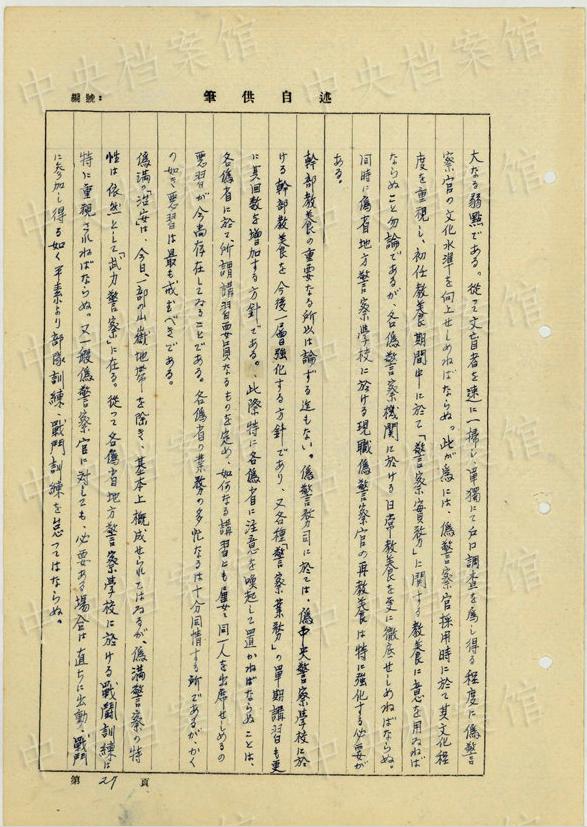 中央档案馆
編號：
述自供筆
大なる弱點である。從つて文盲者を速に一掃し、單獨にて戸口調査を爲し得る程度に偽警
察官の文化水準を向上せしめねばならぬ。此が爲には、偽警察官採用時に於て其文化程
度を重視し、初任教養期間中に於て「警察實務」に関する教養に意を用ゐねば
ならぬこと勿論であるが、各偽警察機関に於ける日常教養を更に徹底せしめねばならぬ。
同時に偽省地方警察学校に於ける現職偽警察官の再教養は特に強化する必要が
ある。
幹部教養の重要なる所以は論ずる迄もない。偽警務司に於ては、偽中央警察学校に於
ける幹部教養を今後一層強化する方針であり、又各種「警察業務」の單期講習も更
に其回数を増加する方針である。此際特に各偽省に注意を喚起して置かねばならぬことは、
各偽省に於て所謂講習要員なるものを定め、如何なる講習にも屢々同一人を出席せしめるの
悪習が今尚存在してゐることである。各偽省の業務の多忙なるは十分同情する所であるがかく
の如き悪習は最も戒むべきである。
偽満の治安は、今日一部の山嶽地帯を除き、基本上概成せられてはゐるが、偽満警察の特
性は依然として「武力警察」に在る。從つて各偽省地方警察学校に於ける戰鬪訓練は
特に重視されねばならぬ。又一般偽警察官に対しても、必要ある場合は直ちに出動、戰鬥
に参加し得る如く平素より部隊訓練、戰鬥訓練を怠つてはならぬ。
第 27 頁